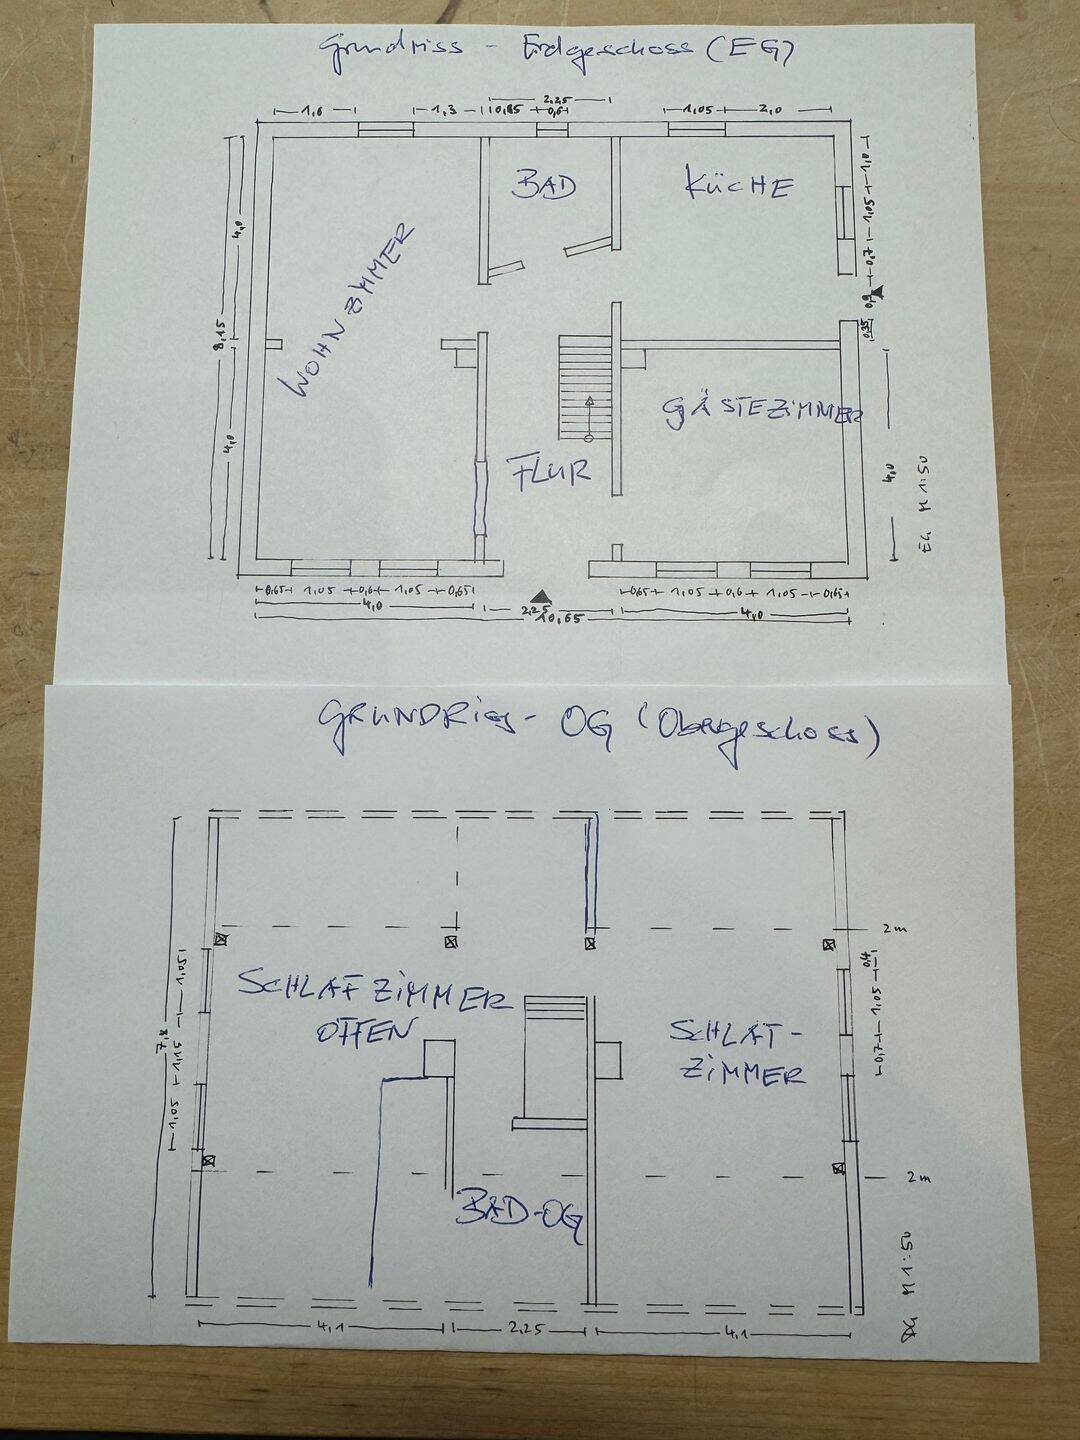 Grundriss - Erdgeschoss (EG)
2,25
1,6 1,3 0,85 0,6 1,05 2,0
BAD
KÜCHE
WOHNZIMMER
4,0
8,15
4,0
1,0
1,05
0,7
0,9
0,35
GÄSTEZIMMER
FLUR
4,0
EG M 1:50
0,65 1,05 0,6 1,05 0,65
0,65 1,05 0,6 1,05 0,65
4,0 2,25 4,0
10,65
GRUNDRiss - OG (Obergeschoss)
2m
1,05
1,15
1,05
7,8
0,4
1,05
0,7
SCHLAFZIMMER
OFFEN
SCHLAF-
ZIMMER
2m
BAD-OG
DG M 1:50
4,1 2,25 4,1